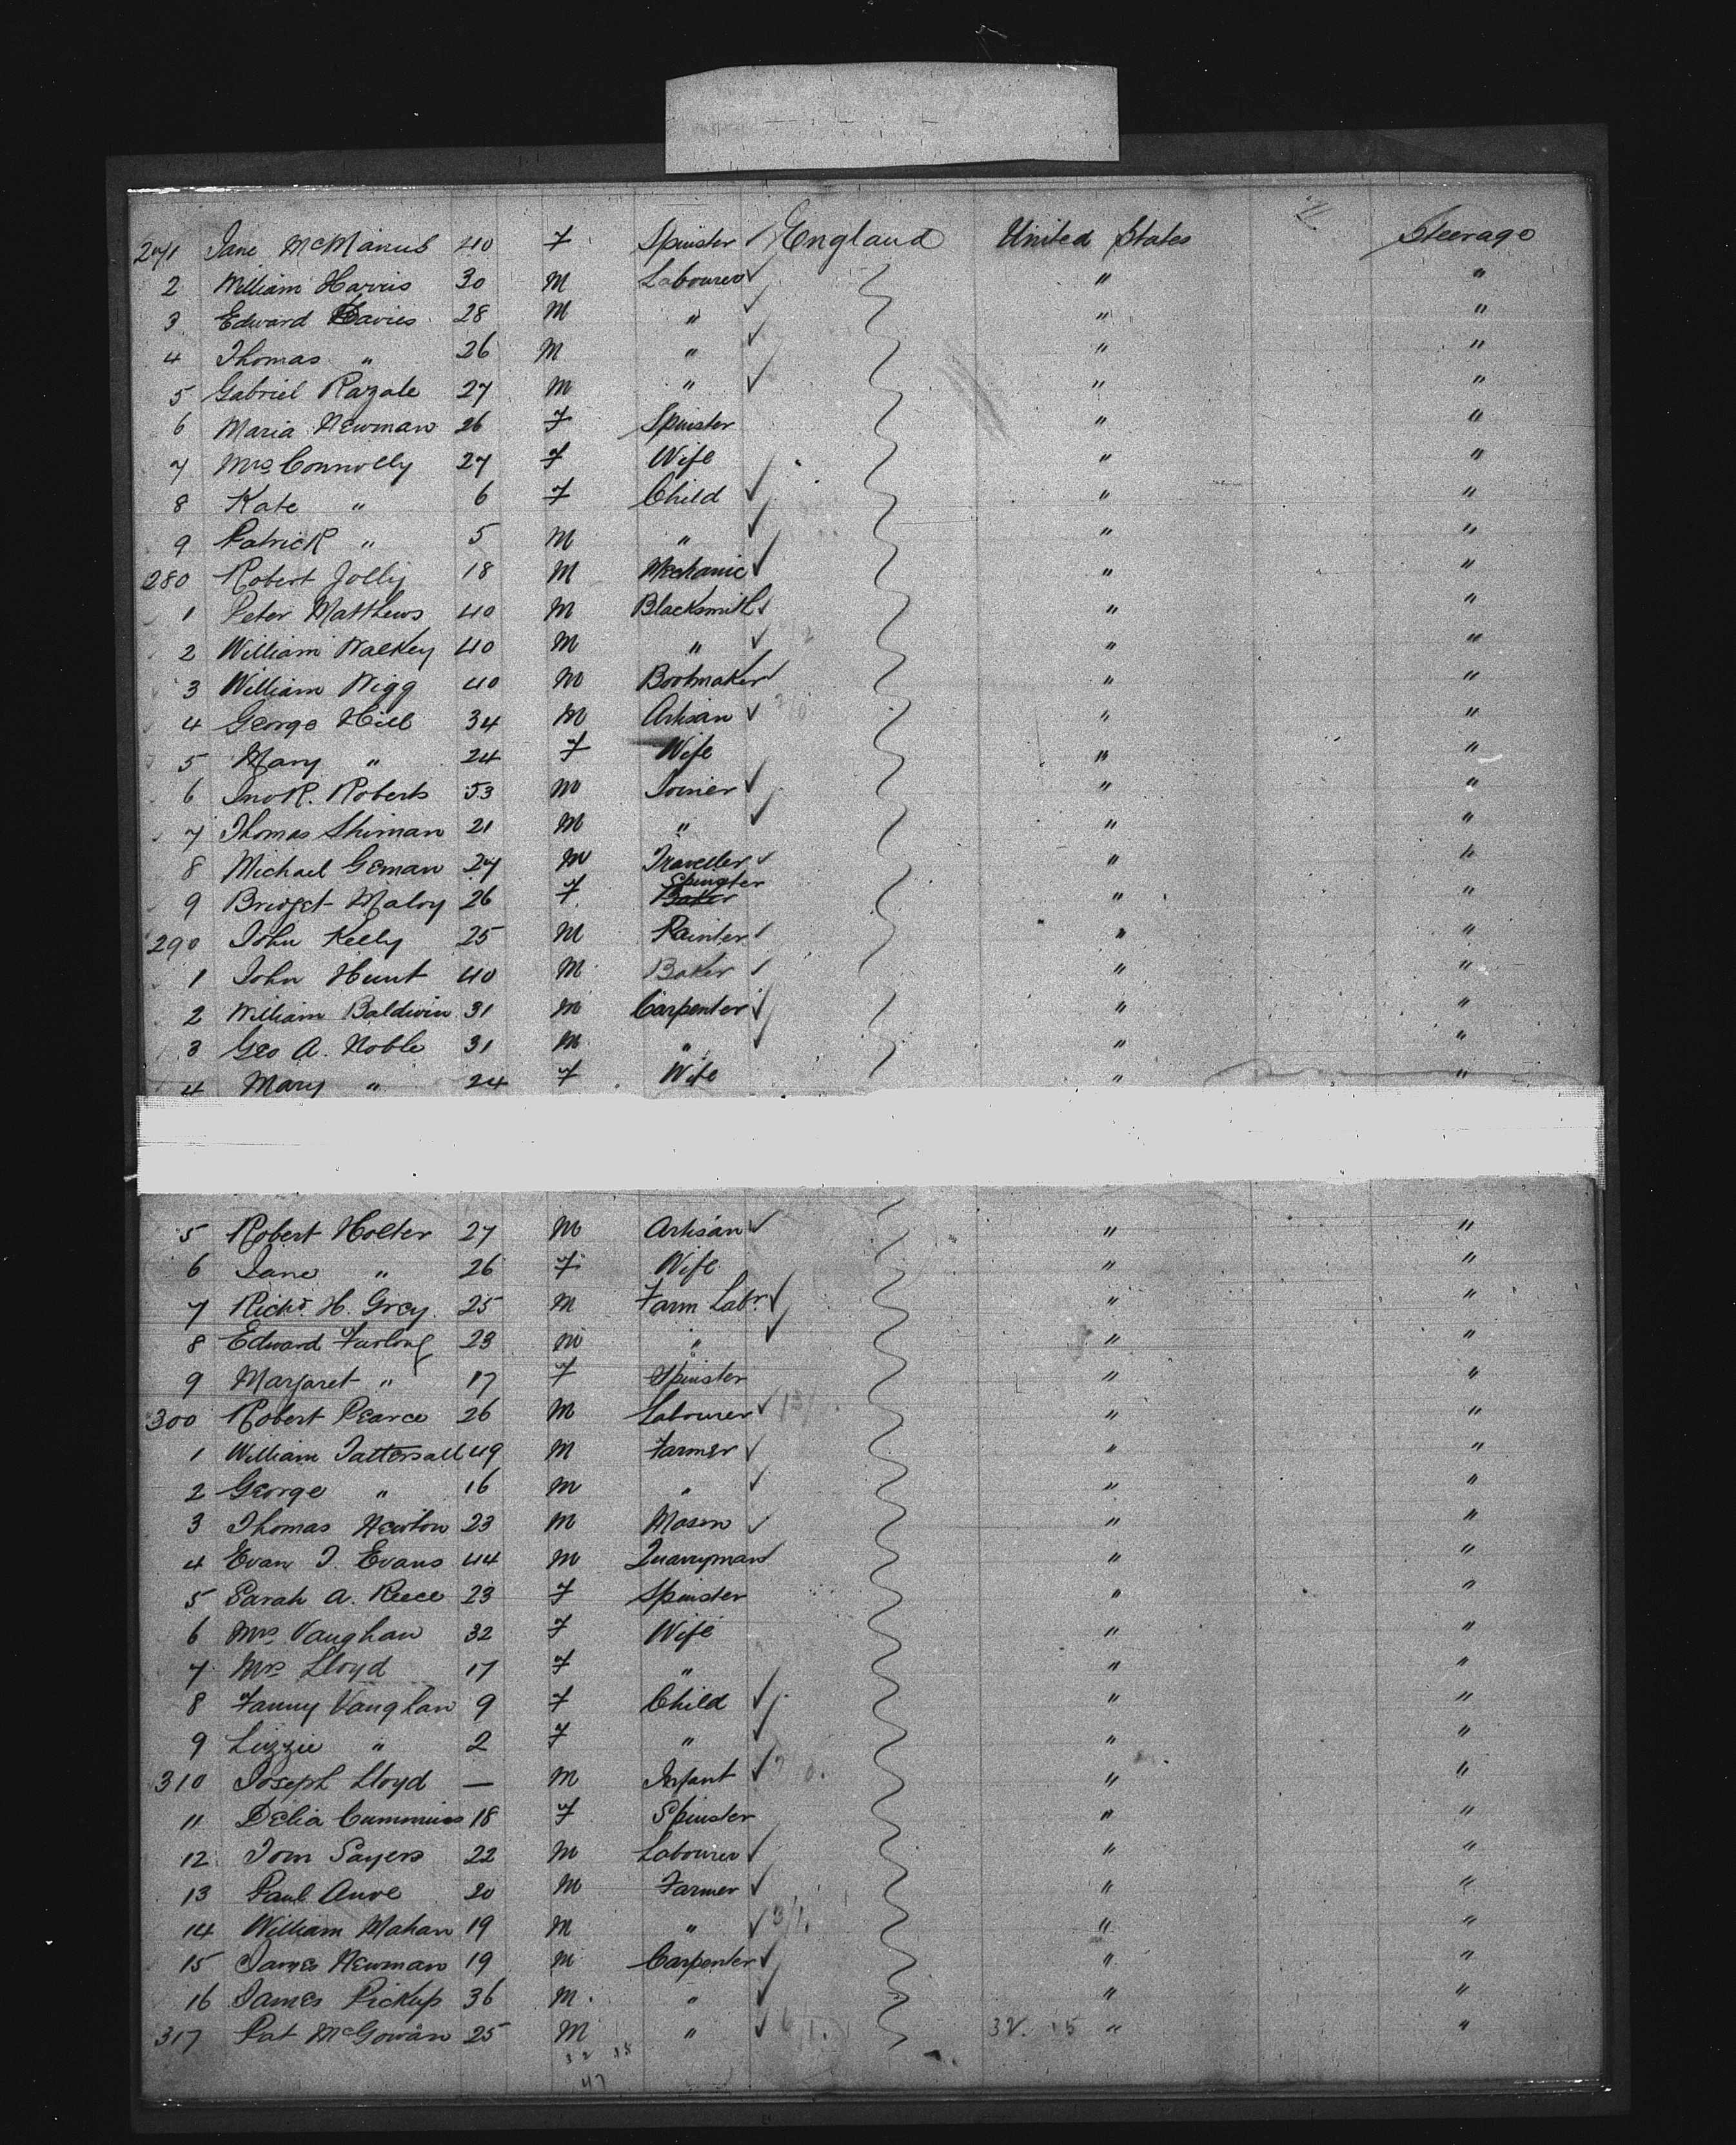 271 Jane McManus 40 F Spinster England United States Steerage
2 William Harris 30 M Labourer " "
3 Edward Davies 28 M " " "
4 Thomas " 26 M " " "
5 Gabriel Razale 27 M " " "
6 Maria Newman 26 F Spinster " "
7 Mrs Connolly 27 F Wife " "
8 Kate " 6 F Child " "
9 Patrick " 5 M " " "
280 Robert Jolly 18 M Mechanic " "
1 Peter Matthews 40 M Blacksmith " "
2 William Walkey 40 M " " "
3 William Wigg 40 M Bootmaker " "
4 George Hill 34 M Artisan " "
5 Mary " 24 F Wife " "
6 Jno R. Roberts 53 M Joiner " "
7 Thomas Shiman 21 M " " "
8 Michael Geman 27 M Traveller " "
9 Bridget Maloy 26 F Spinster Baker " "
290 John Kelly 25 M Painter " "
1 John Hunt 40 M Baker " "
2 William Baldwin 31 M Carpenter " "
3 Geo A. Noble 31 M " " "
4 Mary " 24 F Wife " "
5 Robert Holter 27 M Artisan " "
6 Jane " 26 F Wife " "
7 Richd H. Grey 25 M Farm Labr. " "
8 Edward Furlong 23 M " " "
9 Margaret " 17 F Spinster " "
300 Robert Pearce 26 M Labourer " "
1 William Tattersall 49 M Farmer " "
2 George " 16 M " " "
3 Thomas Newton 23 M Mason " "
4 Evan J. Evans 44 M Quarryman " "
5 Sarah A. Reece 23 F Spinster " "
6 Mrs Vaughan 32 F Wife " "
7 Mrs Lloyd 17 F " " "
8 Fanny Vaughan 9 F Child " "
9 Lizzie " 2 F " " "
310 Joseph Lloyd — M Infant " "
11 Delia Cummins 18 F Spinster " "
12 Tom Sayers 22 M Labourer " "
13 Paul Anve 20 M Farmer " "
14 William Mahan 19 M " 3/1. " "
15 James Newman 19 M Carpenter " "
16 James Pickup 36 M " " "
317 Pat McGowan 25 M " 6/1. 32. 15 " "
32 15
47